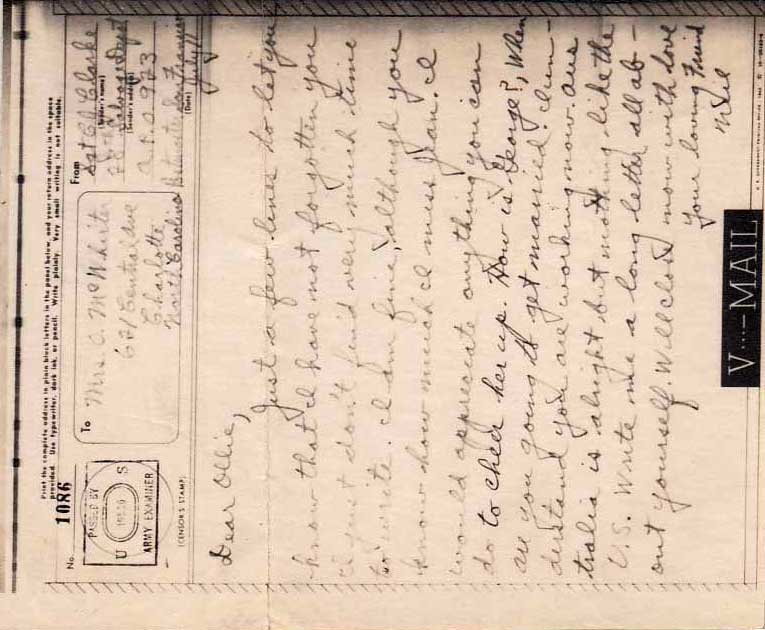 Print the complete address in plain block letters in the panel below, and your return address in the space
provided. Use typewriter, dark ink, or pencil. Write plainly. Very small writing is not suitable.
No.
1086
PASSED BY
U S
ARMY EXAMINER
(CENSOR'S STAMP)
To
Mrs. O. McWhirter
621 Central ave
Charlotte
North Carolina
From
Sgt C J Clarke
(Sender's name)
Salvage Dept
(Sender's address)
A.P.O. 923
San Francisco
July 11
(Date)
Dear Ollie,
Just a few lines to let you
know that I have not forgotten you
I just don't find very much time
to write. I am fine, although you
know how much I miss Jean. I
would appreciate anything you can
do to cheer her up. How is George?, When
are you going to get married? I un-
derstand you are working now. Aus
tralia is alright but nothing like the
U.S. Write me a long letter all ab-
out yourself. Will close now with love
Your loving Friend
V...—MAIL